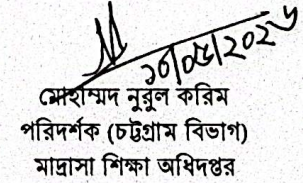 ১০/০৫/২০২৬
মোহাম্মদ নুরুল করিম
পরিদর্শক (চট্টগ্রাম বিভাগ)
মাদ্রাসা শিক্ষা অধিদপ্তর